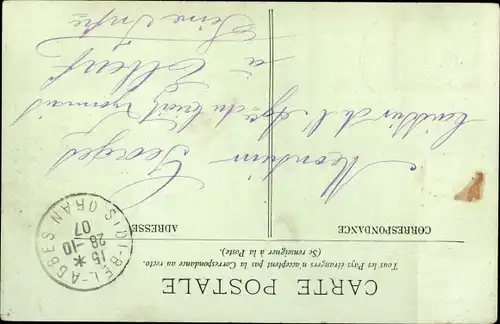 CARTE POSTALE
Tous les Pays étrangers n'acceptent pas la Correspondance au recto.
(Se renseigner à la Poste).
CORRESPONDANCE
ADRESSE
SIDI-BEL-ABBÈS ORAN
15 *
28-10
07
Monsieur Georges
de l'Agce du Crédit Lyonnais
à Elbeuf
Seine Infre